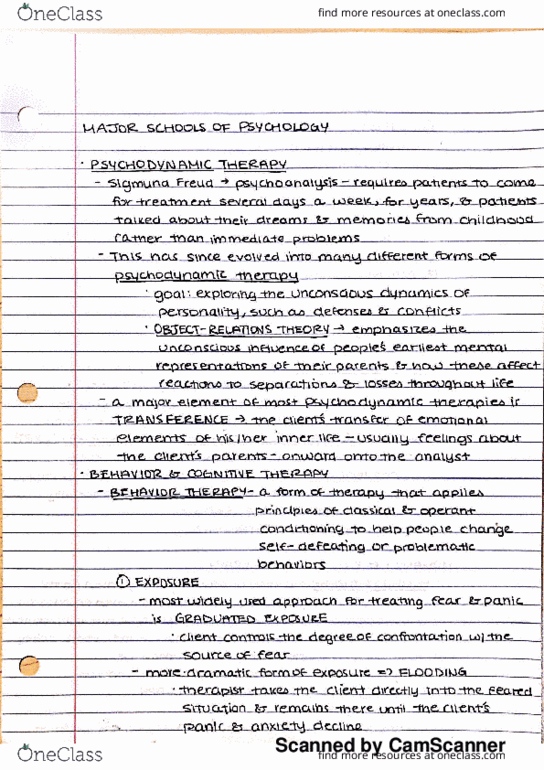 OneClass
find more resources at oneclass.com
MAJOR SCHOOLS OF PSYCHOLOGY
· PSYCHODYNAMIC THERAPY
- Sigmund Freud → psychoanalysis - requires patients to come
for treatment several days a week, for years, & patients
talked about their dreams & memories from childhood
rather than immediate problems
- This has since evolved into many different forms of
psychodynamic therapy
· goal: exploring the unconscious dynamics of
personality, such as defenses & conflicts
· OBJECT-RELATIONS THEORY → emphasizes the
unconscious influence of people's earliest mental
representations of their parents & how these affect
reactions to separations & losses throughout life
- a major element of most psychodynamic therapies is
TRANSFERENCE → the client's transfer of emotional
elements of his/her inner life - usually feelings about
the client's parents - onward onto the analyst
· BEHAVIOR & COGNITIVE THERAPY
- BEHAVIOR THERAPY - a form of therapy that applies
principles of classical & operant
conditioning to help people change
self-defeating or problematic
behaviors
① EXPOSURE
- most widely used approach for treating fear & panic
is GRADUATED EXPOSURE
· client controls the degree of confrontation w/ the
source of fear
- more dramatic form of exposure => FLOODING
· therapist takes the client directly into the feared
situation & remains there until the client's
panic & anxiety decline
Scanned by CamScanner
OneClass
find more resources at oneclass.com